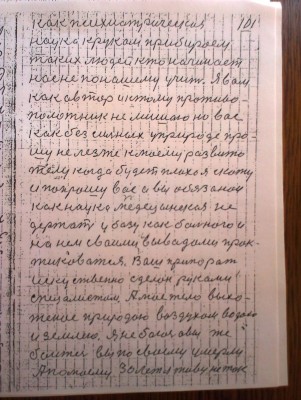 как психистрическая 101
наука к рукам прибираем
таких людей кто начинает
нас не по нашему учит. Я вам
как автор истому противо-
полотник не мишаю но вас
как без сильных у природе про-
шу не лезте к моему развито
телу когда будет плохо я скажу
и попрошу вас а вы обязаной
как наука медецинская не
держат у базу как больного и
на нем своими вывадами прак-
тиковатся. Ваш припорат
искуственно сделон руками
специалистом А мое тело выхо-
женое природою воздухом водою
и землею. Я не боюсь а вы же
боитес вы по своему умерли
А по моему 30 лет я живу не так